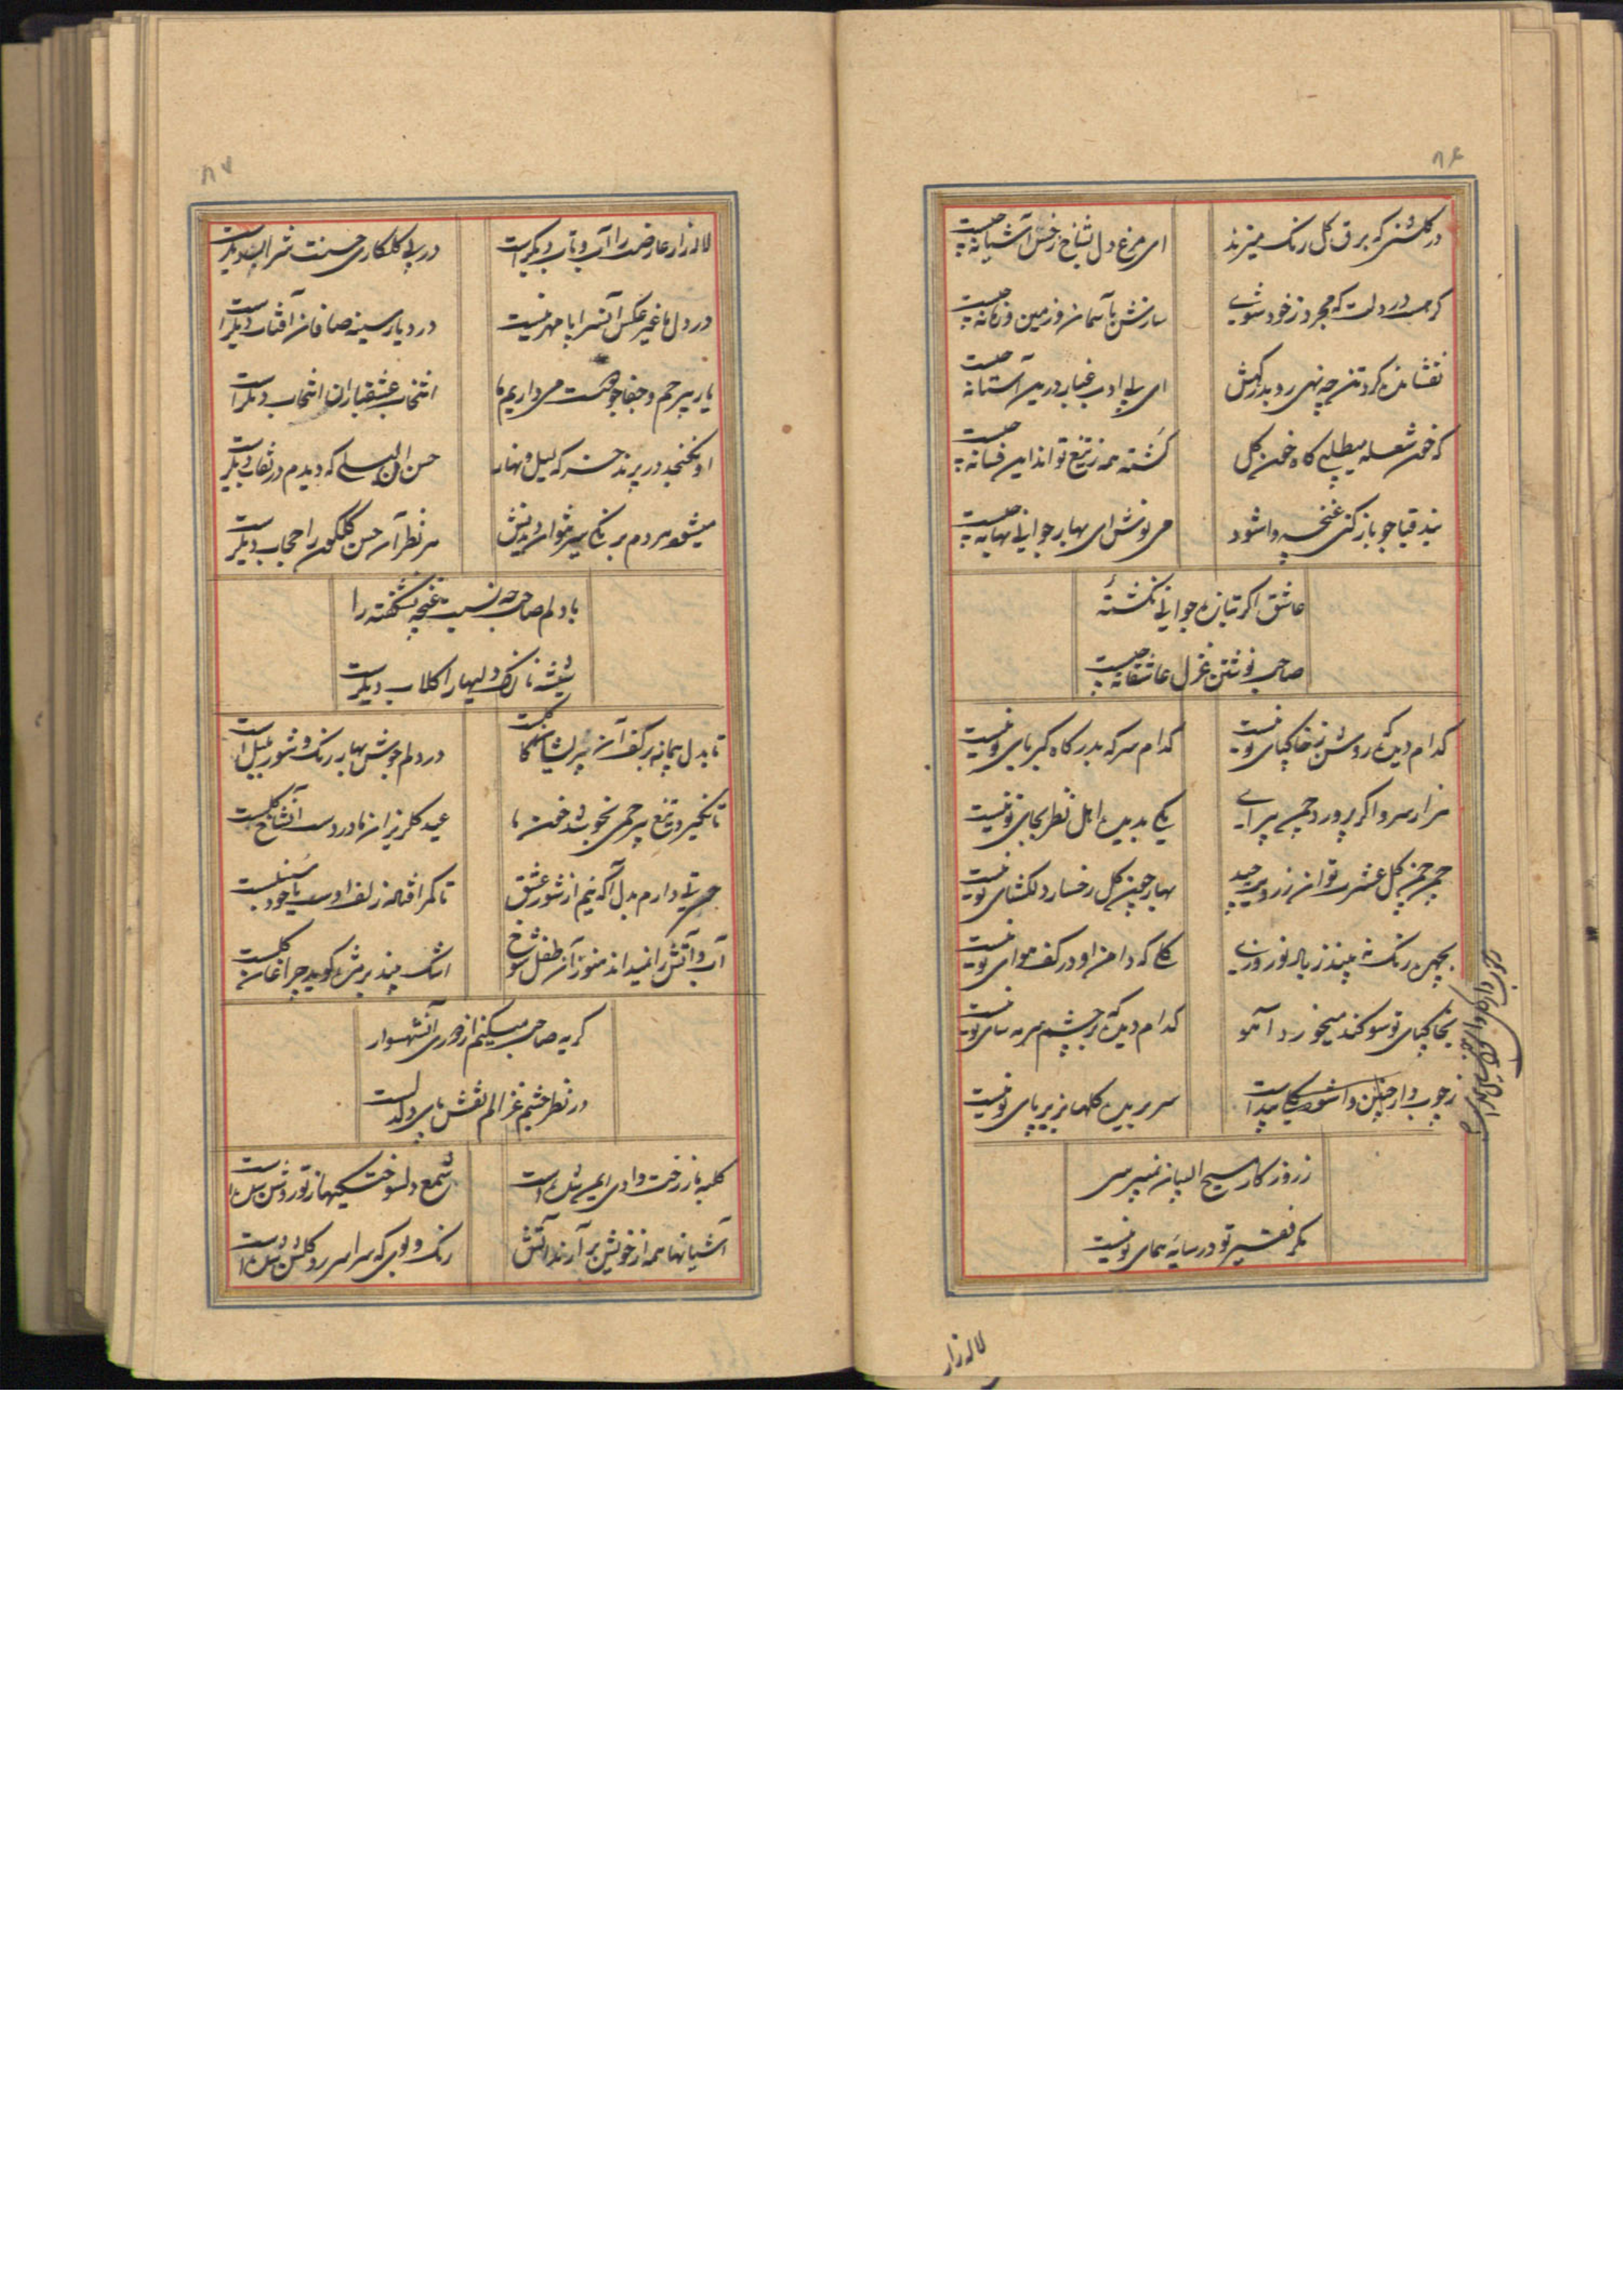 ۸۶
در گلشنی که برق گل رنگ میزند
ای مرغ دل بشاخ زخس آشیانه چیست
گر هست در دلت که مجرد ز خود شوی
سازش بآسمان و زمین و زمانه چیست
نفشانده گرد تن چه نهی رو بدرگهش
ای بی ادب غبار درین آستانه چیست
که خون شعله میطلبی گاه خون گل
گشته همه ز تیغ تو اند این فسانه چیست
بند قبا چو باز کنی غنچه واشود
می نوش ای بهار جوانی بهانه چیست
عاشق اگر بتازه جوانی نگشتهٔ
صاحب نوشتن غزل عاشقانه چیست
کدام دیده که روشن ز خاکپای تو نیست
کدام سر که بدرگاه کبریای تو نیست
هزار سرو اگر پرورد چمن پیرای
یکی بدیده اهل نظر بجای تو نیست
چمن چمن گل عشرت توان ز روی تو چید
بهار چون گل رخسار دلکشای تو نیست
بچهره رنگ نه بیند ز باله نوروزی
گلی که دامن او در کف هوای تو نیست
بخاکپای تو سوکند میخورد آهو
کدام دیده که بر چشم سرمه سای تو نیست
ز چوب دار چنین وا شود گلی پیداست
سر بریده گلها بزیر پای تو نیست
ز روزکار مسیح البیان نمیپرسی
مگر فقیر تو در سایه همای تو نیست
لاله زار
۸۷
لاله زار عارضت را آب و تاب دیگر است
در پی گلکاری حسنت شراب دیگر است
در دل ما غیر عکس آن سراپا مهر نیست
در دیار سینه صافان آفتاب دیگر است
یار بیرحم و جفاجو دوست می داریم ما
انتخاب عشقبازان انتخاب دیگر است
او نگنجد در پرند حسن که لیل و نهار
حسن آن لیلی که دیدم در نقاب دیگر است
میشود هر دم برنگی سیر نتوان دیدنش
هر نظر آن حسن گلگون را حجاب دیگر است
با دلم صاحب چه نسبت غنچه نشکفته را
شیشه نازک دلیها را کلاب دیگر است
تا بدل پیمانه بر کف آن پریشان کاکلست
در دلم جوش بهار رنگ و شور بلبل است
تا نگیرد تیغ بیرحمی نخوبشد خون ما
عید گلریزان ما در دست آن شاخ گلست
حیرتی دارم بدل آگه نیم از شور عشق
تا کمر افتاده زلف اوست یا خود سنبلست
آب و آتش را نمیداند هنوز آن طفل شوخ
اشک بیند بر مژه گوید چراغان گلست
گریه صاحب میکنم از دوری آن شهسوار
در نظر چشم غزالم نقش پای دلدلست
کلبه ما ز رخت وادی ایمن شده است
شمع دلسوختگیها ز تو روشن شده است
آشیانها همه از خویش بر آرند آتش
رنگ و بوی که سراسر رو گلشن شده است